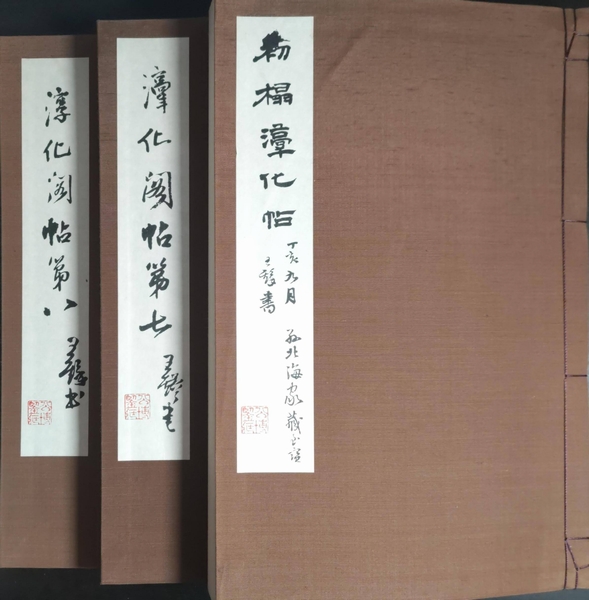 初榻淳化帖
丁亥九月
王鐸書
孫北海家藏
淳化閣帖第七
王鐸書
淳化閣帖第八
王鐸書